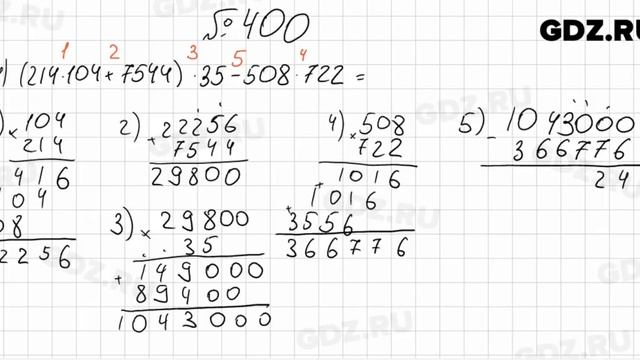 № 400
GDZ.RU
1 2 3 5 4
) (214·104+7544)·35-508·722=
) × 104
214
416
04
08
2256
2) + 22256
7544
29800
3) × 29800
35
+ 149000
89400
1043000
4) × 508
722
+ 1016
+ 1016
3556
366776
5) - 1043000
366776
24
GDZ.RU
GDZ.RU
GDZ.RU